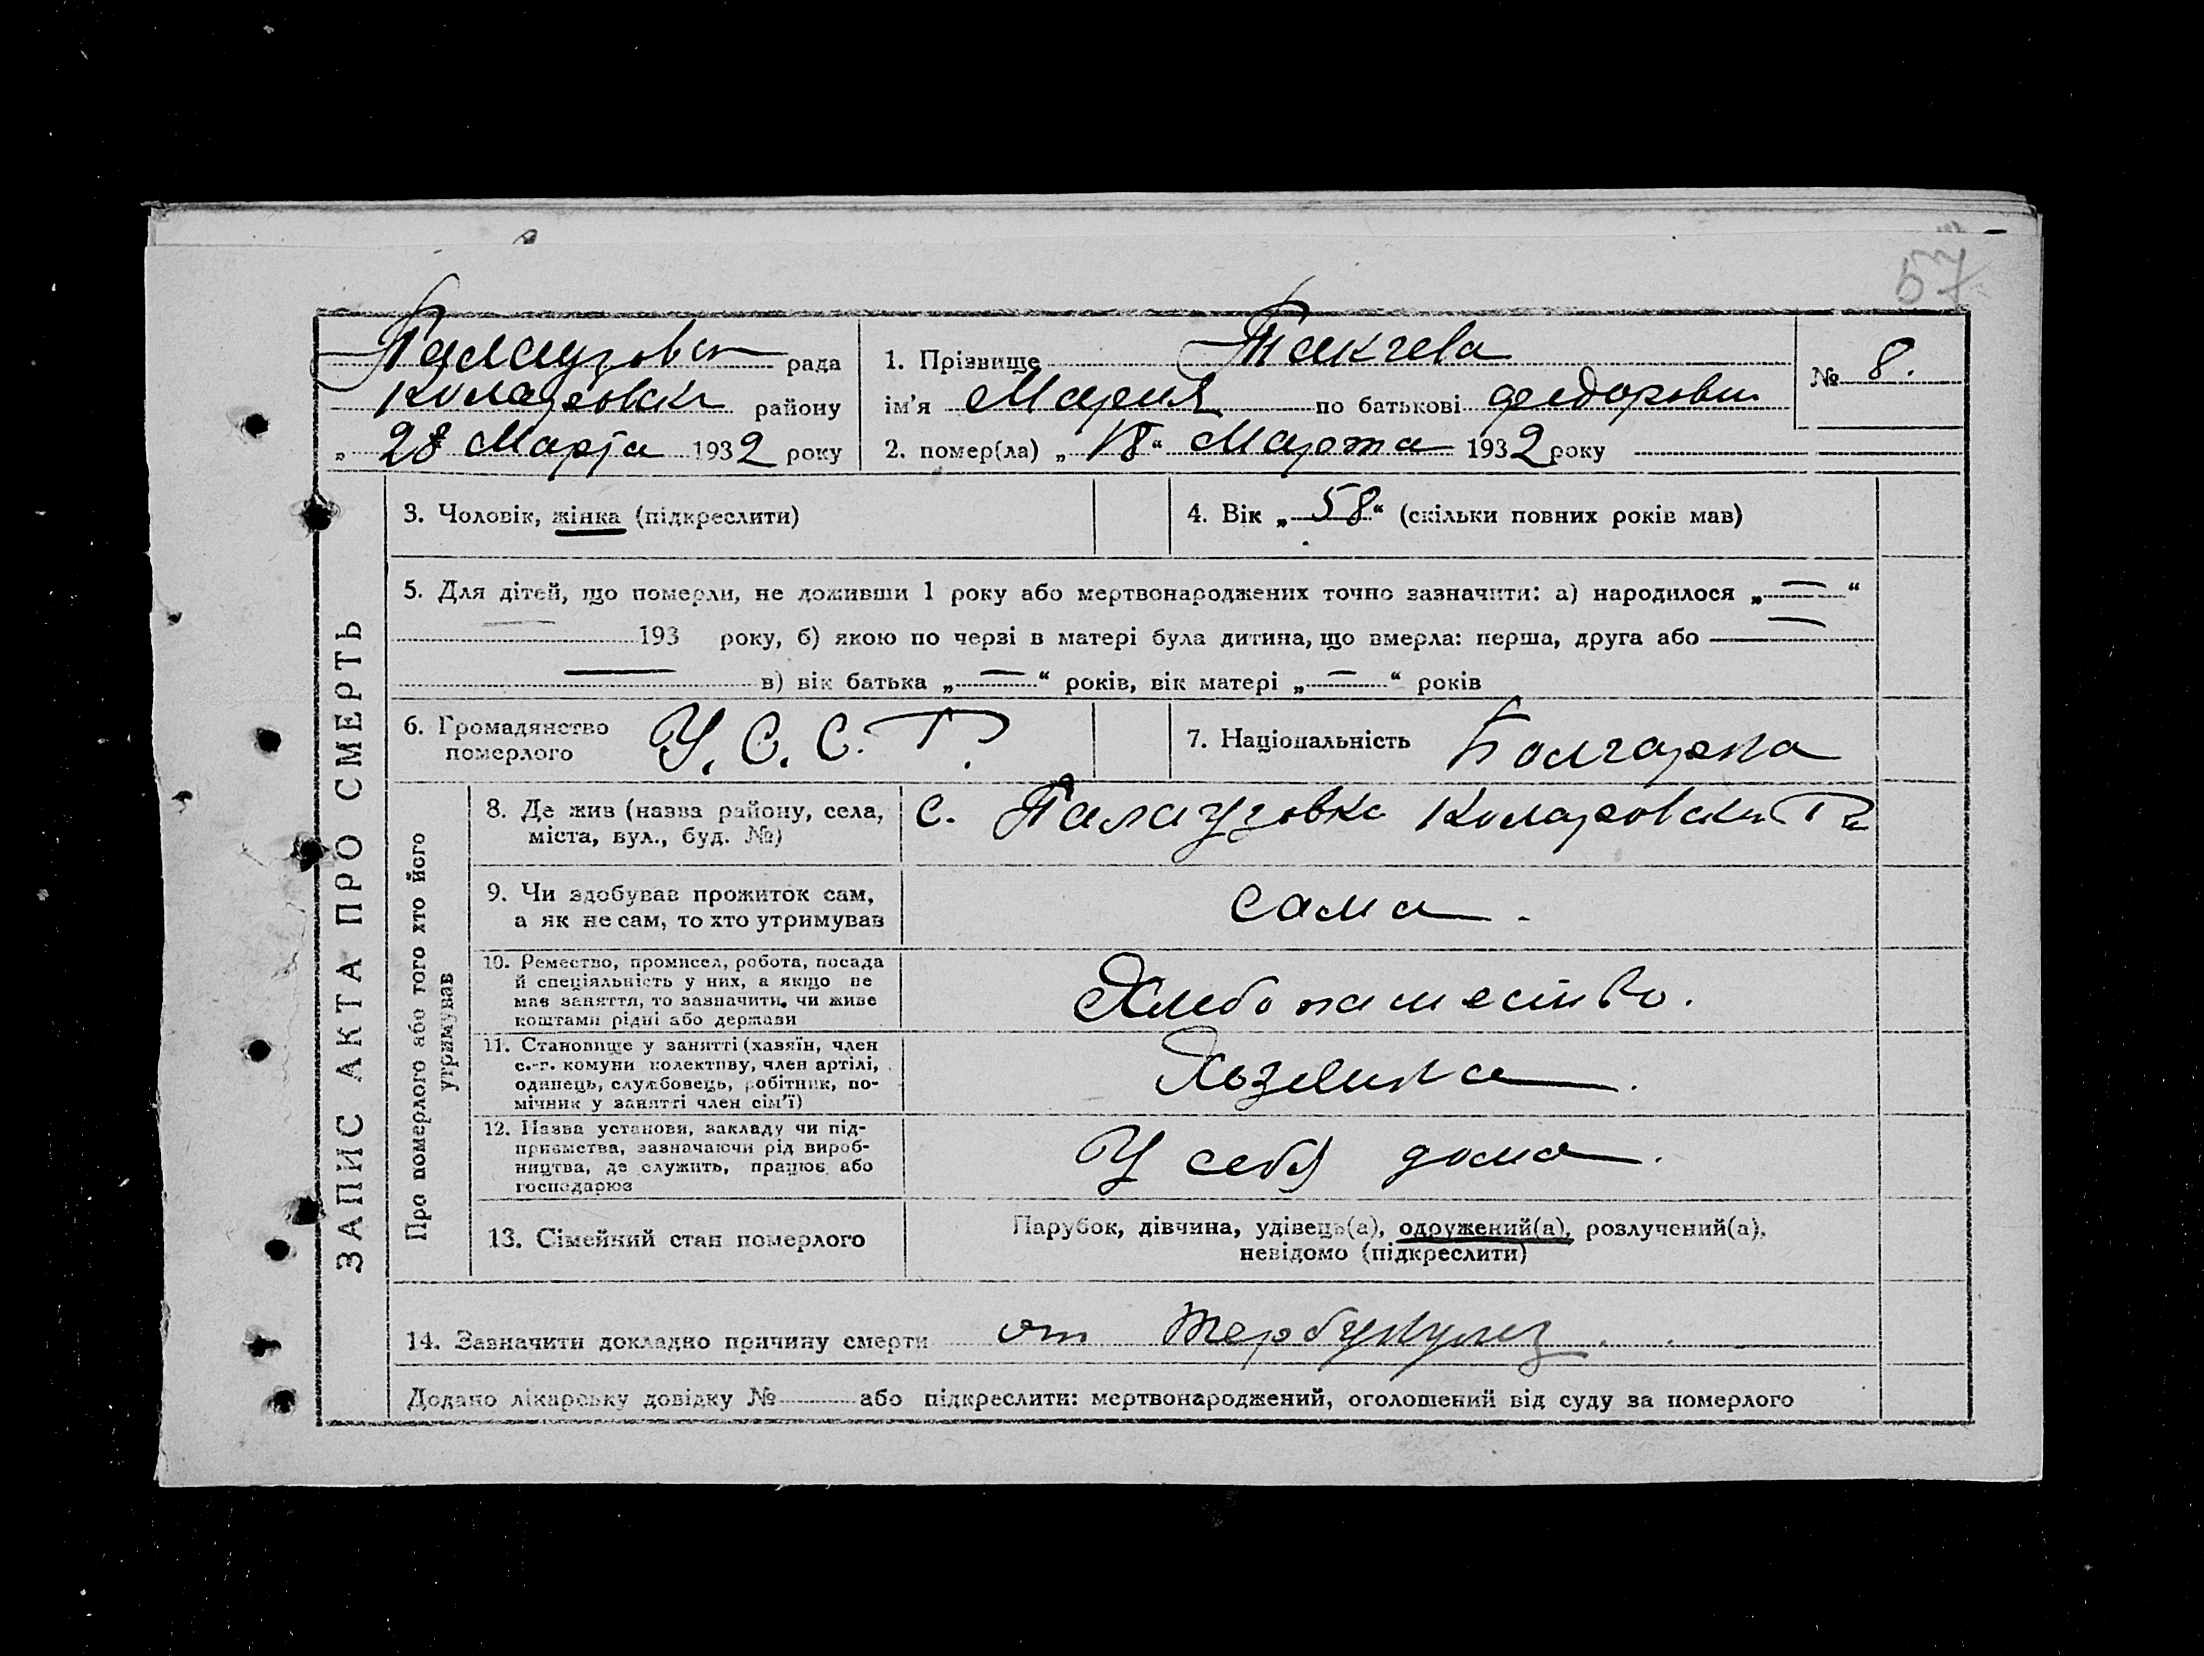 57
Палаузовск рада
Коларовск району
„ 28 Марта 1932 року
1. Прізвище
ім'я Мария по батькові федоровн
2. помер(ла) „ 18 “ Марта 1932 року
№ 8.
ЗАПИС АКТА ПРО СМЕРТЬ
3. Чоловік, жінка (підкреслити)
4. Вік „ 58 “ (скільки повних років мав)
5. Для дітей, що померли, не доживши 1 року або мертвонароджених точно зазначити: а) народилося „ — “
— 193 року, б) якою по черзі в матері була дитина, що вмерла: перша, друга або —
— в) вік батька „ — “ років, вік матері „ — “ років
6. Громадянство
померлого
У. С. С. Р.
7. Національність Болгарка
Про померлого або того хто його
утримував
8. Де жив (назва району, села,
міста, вул., буд. №)
с. Палаузовка Коларовски Р
9. Чи здобував прожиток сам,
а як не сам, то хто утримував
сама.
10. Ремество, промисел, робота, посада
й спеціяльність у них, а якщо не
мав заняття, то зазначити, чи живе
коштами рідні або держави
Хлебопашество.
11. Становище у занятті (хазяїн, член
с.-г. комуни колективу, член артілі,
одинець, службовець, робітник, по-
мічник у занятті член сім'ї)
Хозяика.
12. Назва установи, закладу чи під-
приємства, зазначаючи рід вироб-
ництва, де служить, працює або
господарює
У себя дома.
13. Сімейний стан померлого
Парубок, дівчина, удівець(а), одружений(а), розлучений(а),
невідомо (підкреслити)
14. Зазначити докладно причину смерти от
Додано лікарську довідку № або підкреслити: мертвонароджений, оголошений від суду за померлого